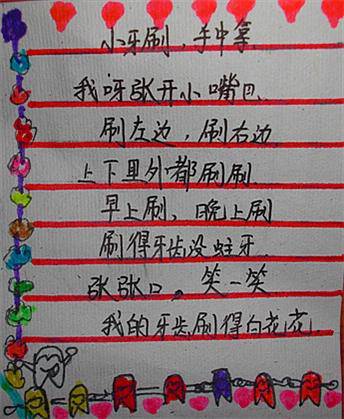 小牙刷，手中拿
我呀张开小嘴巴.
刷左边，刷右边
上下里外都刷刷.
早上刷，晚上刷
刷得牙齿没蛀牙.
张张口。笑一笑
我的牙齿刷得白花花.